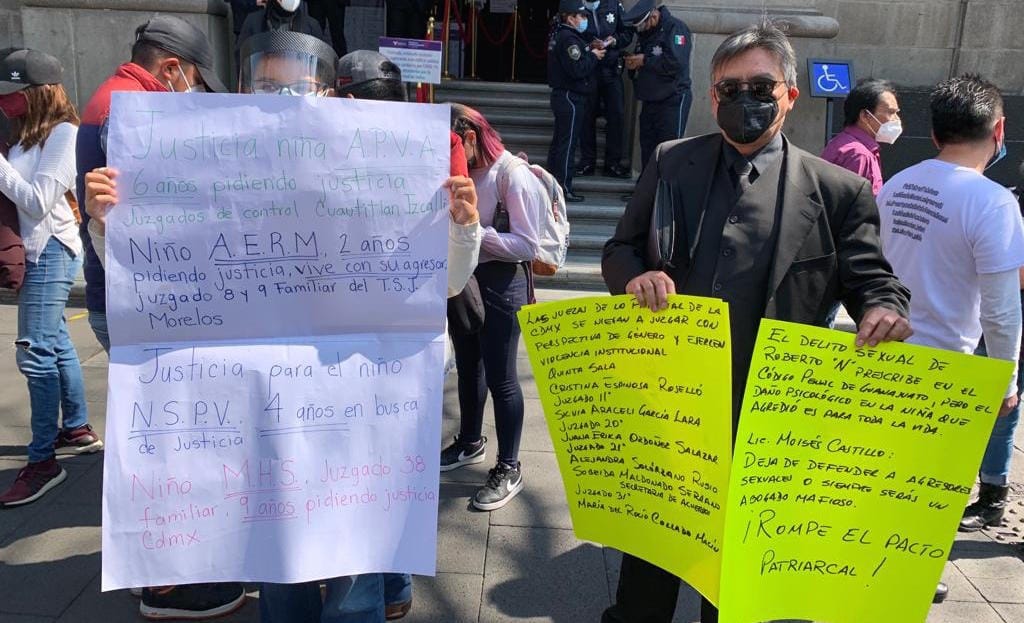 Justicia niña A.P.V.A
6 años pidiendo justicia
Juzgados de control Cuautitlan Izcalli
Niño A.E.R.M, 2 años
pidiendo justicia, vive con su agresor,
juzgado 8 y 9 Familiar del T.S.J
Morelos
Justicia para el niño
N.S.P.V. 4 años en busca
de Justicia
Niño M.H.S., Juzgado 38
familiar, 9 años pidiendo justicia
Cdmx
Las juezas de lo familiar de la
CDMX se niegan a juzgar con
perspectiva de género y ejercen
violencia institucional
Quinta Sala
Cristina Espinosa Roselló
Juzgado 11°
Silvia Araceli García Lara
Juzgado 20°
Juana Erika Ordoñez Salazar
Juzgado 21°
Alejandra Solórzano Rubio
Sobeida Maldonado Serrano
Secretaria de Acuerdos
Juzgado 31°
María del Rocío Collado Macín
El delito sexual de
Roberto "N" prescribe en el
Código Penal de Guanajuato, pero el
daño psicológico en la niña que
agredió es para toda la vida.
Lic. Moisés Castillo:
Deja de defender a agresores
sexuales o siempre serás un
abogado mafioso.
¡Rompe el pacto
patriarcal!